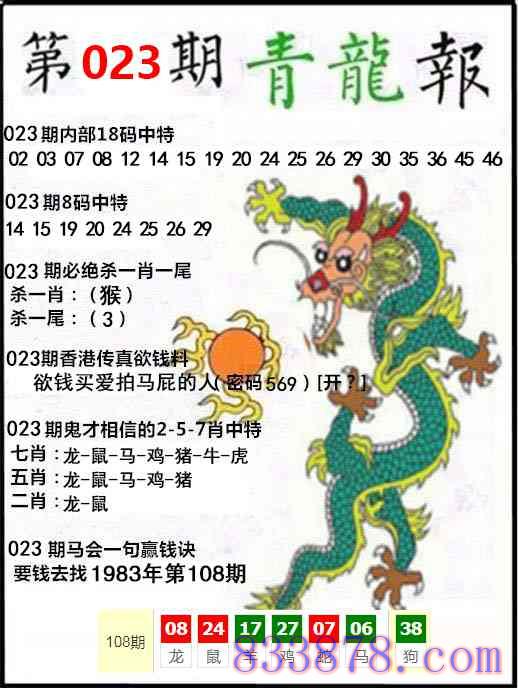 第023期青龍報
023期内部18码中特
02 03 07 08 12 14 15 19 20 24 25 26 29 30 35 36 45 46
023期8码中特
14 15 19 20 24 25 26 29
023 期必绝杀一肖一尾
杀一肖：（猴）
杀一尾：（3）
023期香港传真欲钱料
欲钱买爱拍马屁的人(密码569) [开？]
023期鬼才相信的2-5-7肖中特
七肖：龙-鼠-马-鸡-猪-牛-虎
五肖：龙-鼠-马-鸡-猪
二肖：龙-鼠
023 期马会一句赢钱诀
要钱去找1983年第108期
108期 08 24 17 27 07 06 38
龙 鼠 羊 鸡 蛇 马 狗
833878.com